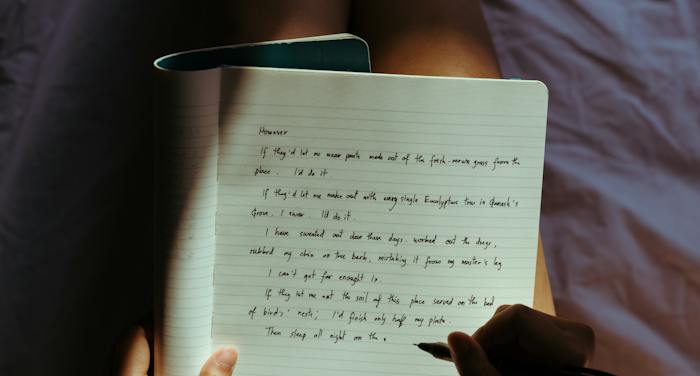 However
If they'd let me wear pants made out of the fresh-  grass from the
place. I'd do it
If they'd let me make out with every single Eucalyptus tree in Ganesh's
Grove. I swear. I'd do it.
I have sweated out  these days. worked out the dregs,
rubbed my chin on tree bark. mistaking it from my master's leg
I can't get far enough in.
If they let me eat the soil of this place served on the bed
of birds' nests; I'd finish only half my plate.
Then sleep all night on the